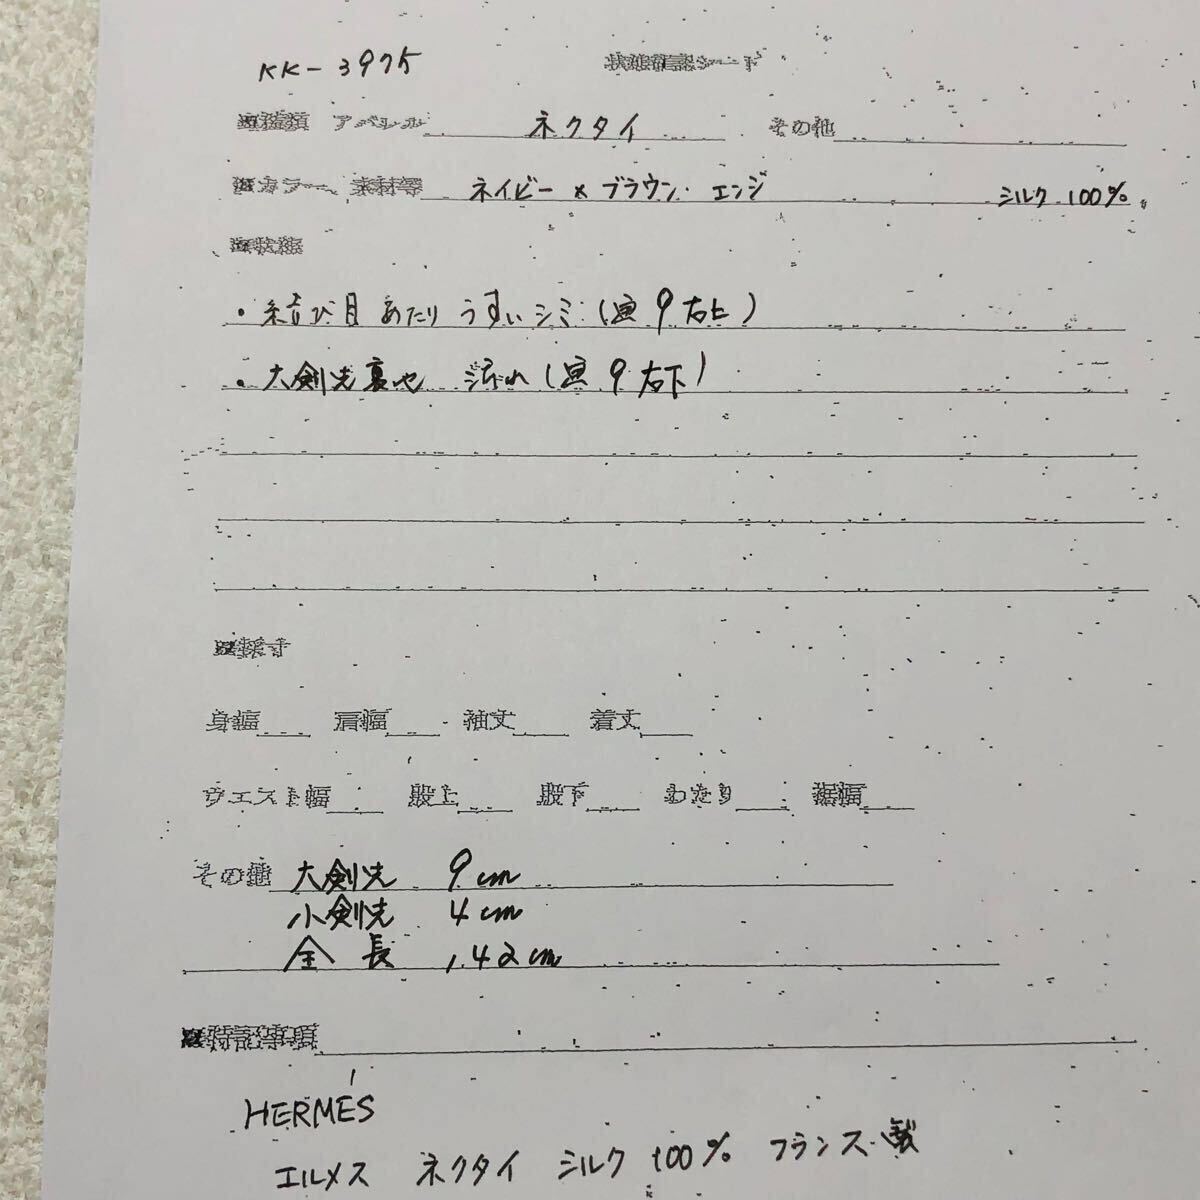 KK-3975 状態確認シート
■種類 アパレル ネクタイ その他
■カラー、素材等 ネイビー×ブラウン・エンジ シルク 100%
■状態
・結び目あたり うすいシミ(画9右上)
・大剣先裏地 汚れ(画9右下)
■採寸
身幅 肩幅 袖丈 着丈
ウエスト幅 股上 股下 わたり 裾幅
その他 大剣先 9cm
小剣先 4cm
全長 142cm
■特記事項
HERMÉS
エルメス ネクタイ シルク 100% フランス製